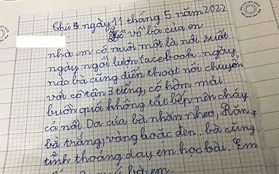 Thứ 3 ngày 11 tháng 5 năm 2022
Kể về bà của em
nhà em có nuôi một bà nội suốt
ngày ngồi lướt facebook, ngày
nào bà cũng điện thoại nói chuyện
với cô tấn 3 tiếng, có hôm mải
buôn quá không tắt bếp nên cháy
cả nồi. Da của bà nhăn nheo, Răng
bà trắng, vàng hoặc đen. bà cũng
thoảng dạy em học bài. Em
bà em